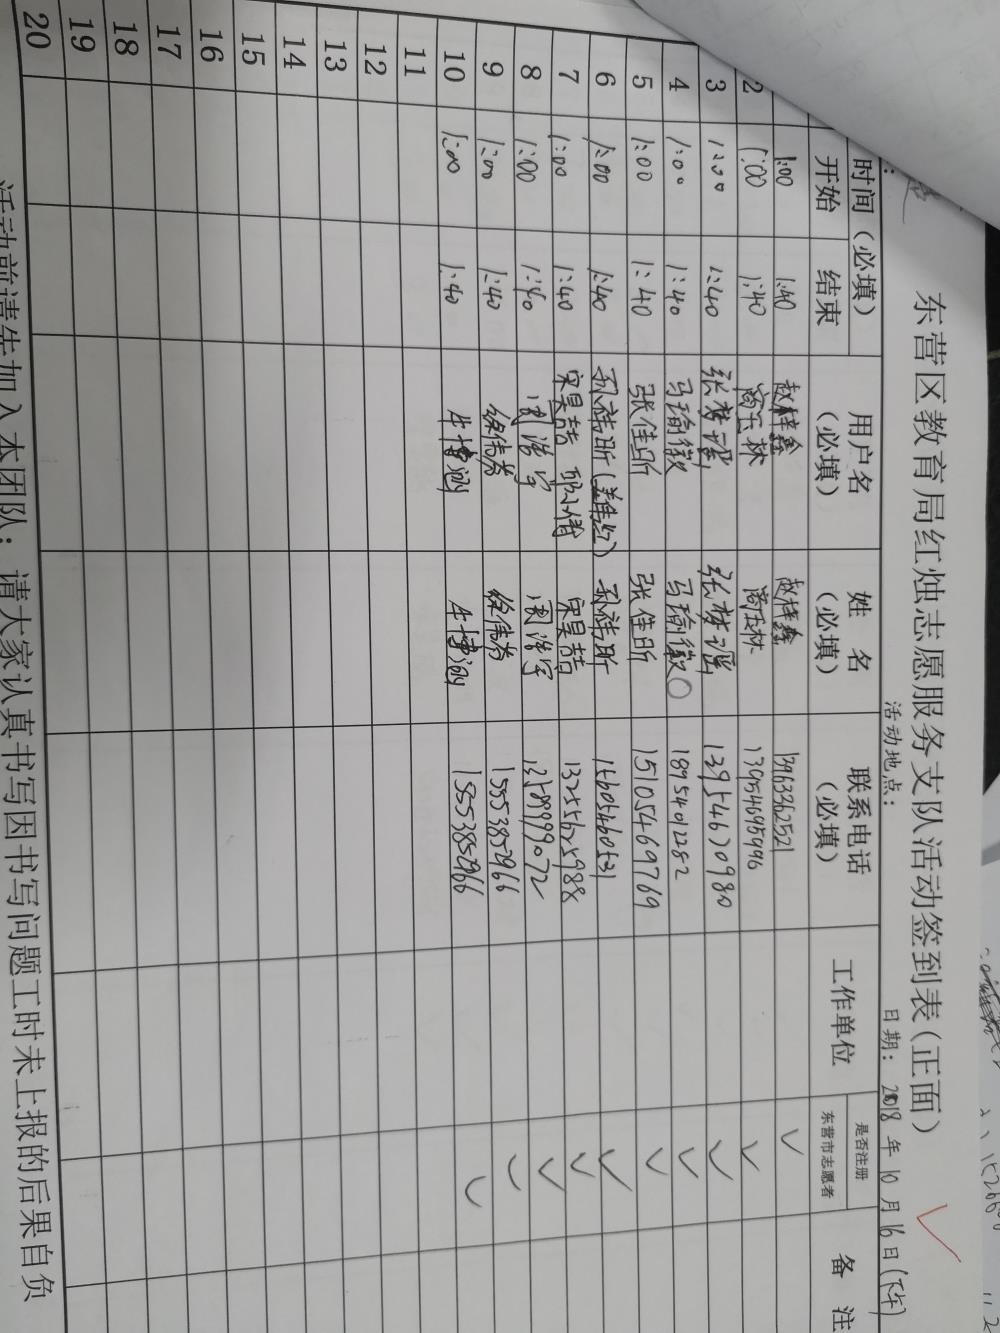 东营区教育局红烛志愿服务支队活动签到表(正面)
活动地点: 日期: 2018 年 10 月 16 日(下午)
时间(必填) 用户名(必填) 姓 名(必填) 联系电话(必填) 工作单位 是否注册东营市志愿者 备 注
开始 结束
1:00 1:40 赵梓鑫 赵梓鑫 13963362521 ✓
2 1:00 1:40 商玉林 商玉林 13054695996 ✓
3 1:00 1:40 张梦瑶 张梦瑶 ✓
4 1:00 1:40 马瑜徽 马瑜徽 18954012282 ✓
5 1:00 1:40 张佳昕 张佳昕 15105469769 ✓
6 1:00 1:40 孙祎昕 孙祎昕 15605460531 ✓
7 1:00 1:40 宋昊喆 宋昊喆 ✓
8 1:00 1:40 周浩宇 周浩宇 ✓
9 1:00 1:40 15553852966 ✓
10 1:00 1:40 牛博涵 牛博涵 15553852966 ✓
11
12
13
14
15
16
17
18
19
20
活动前请先加入本团队;请大家认真书写因书写问题工时未上报的后果自负